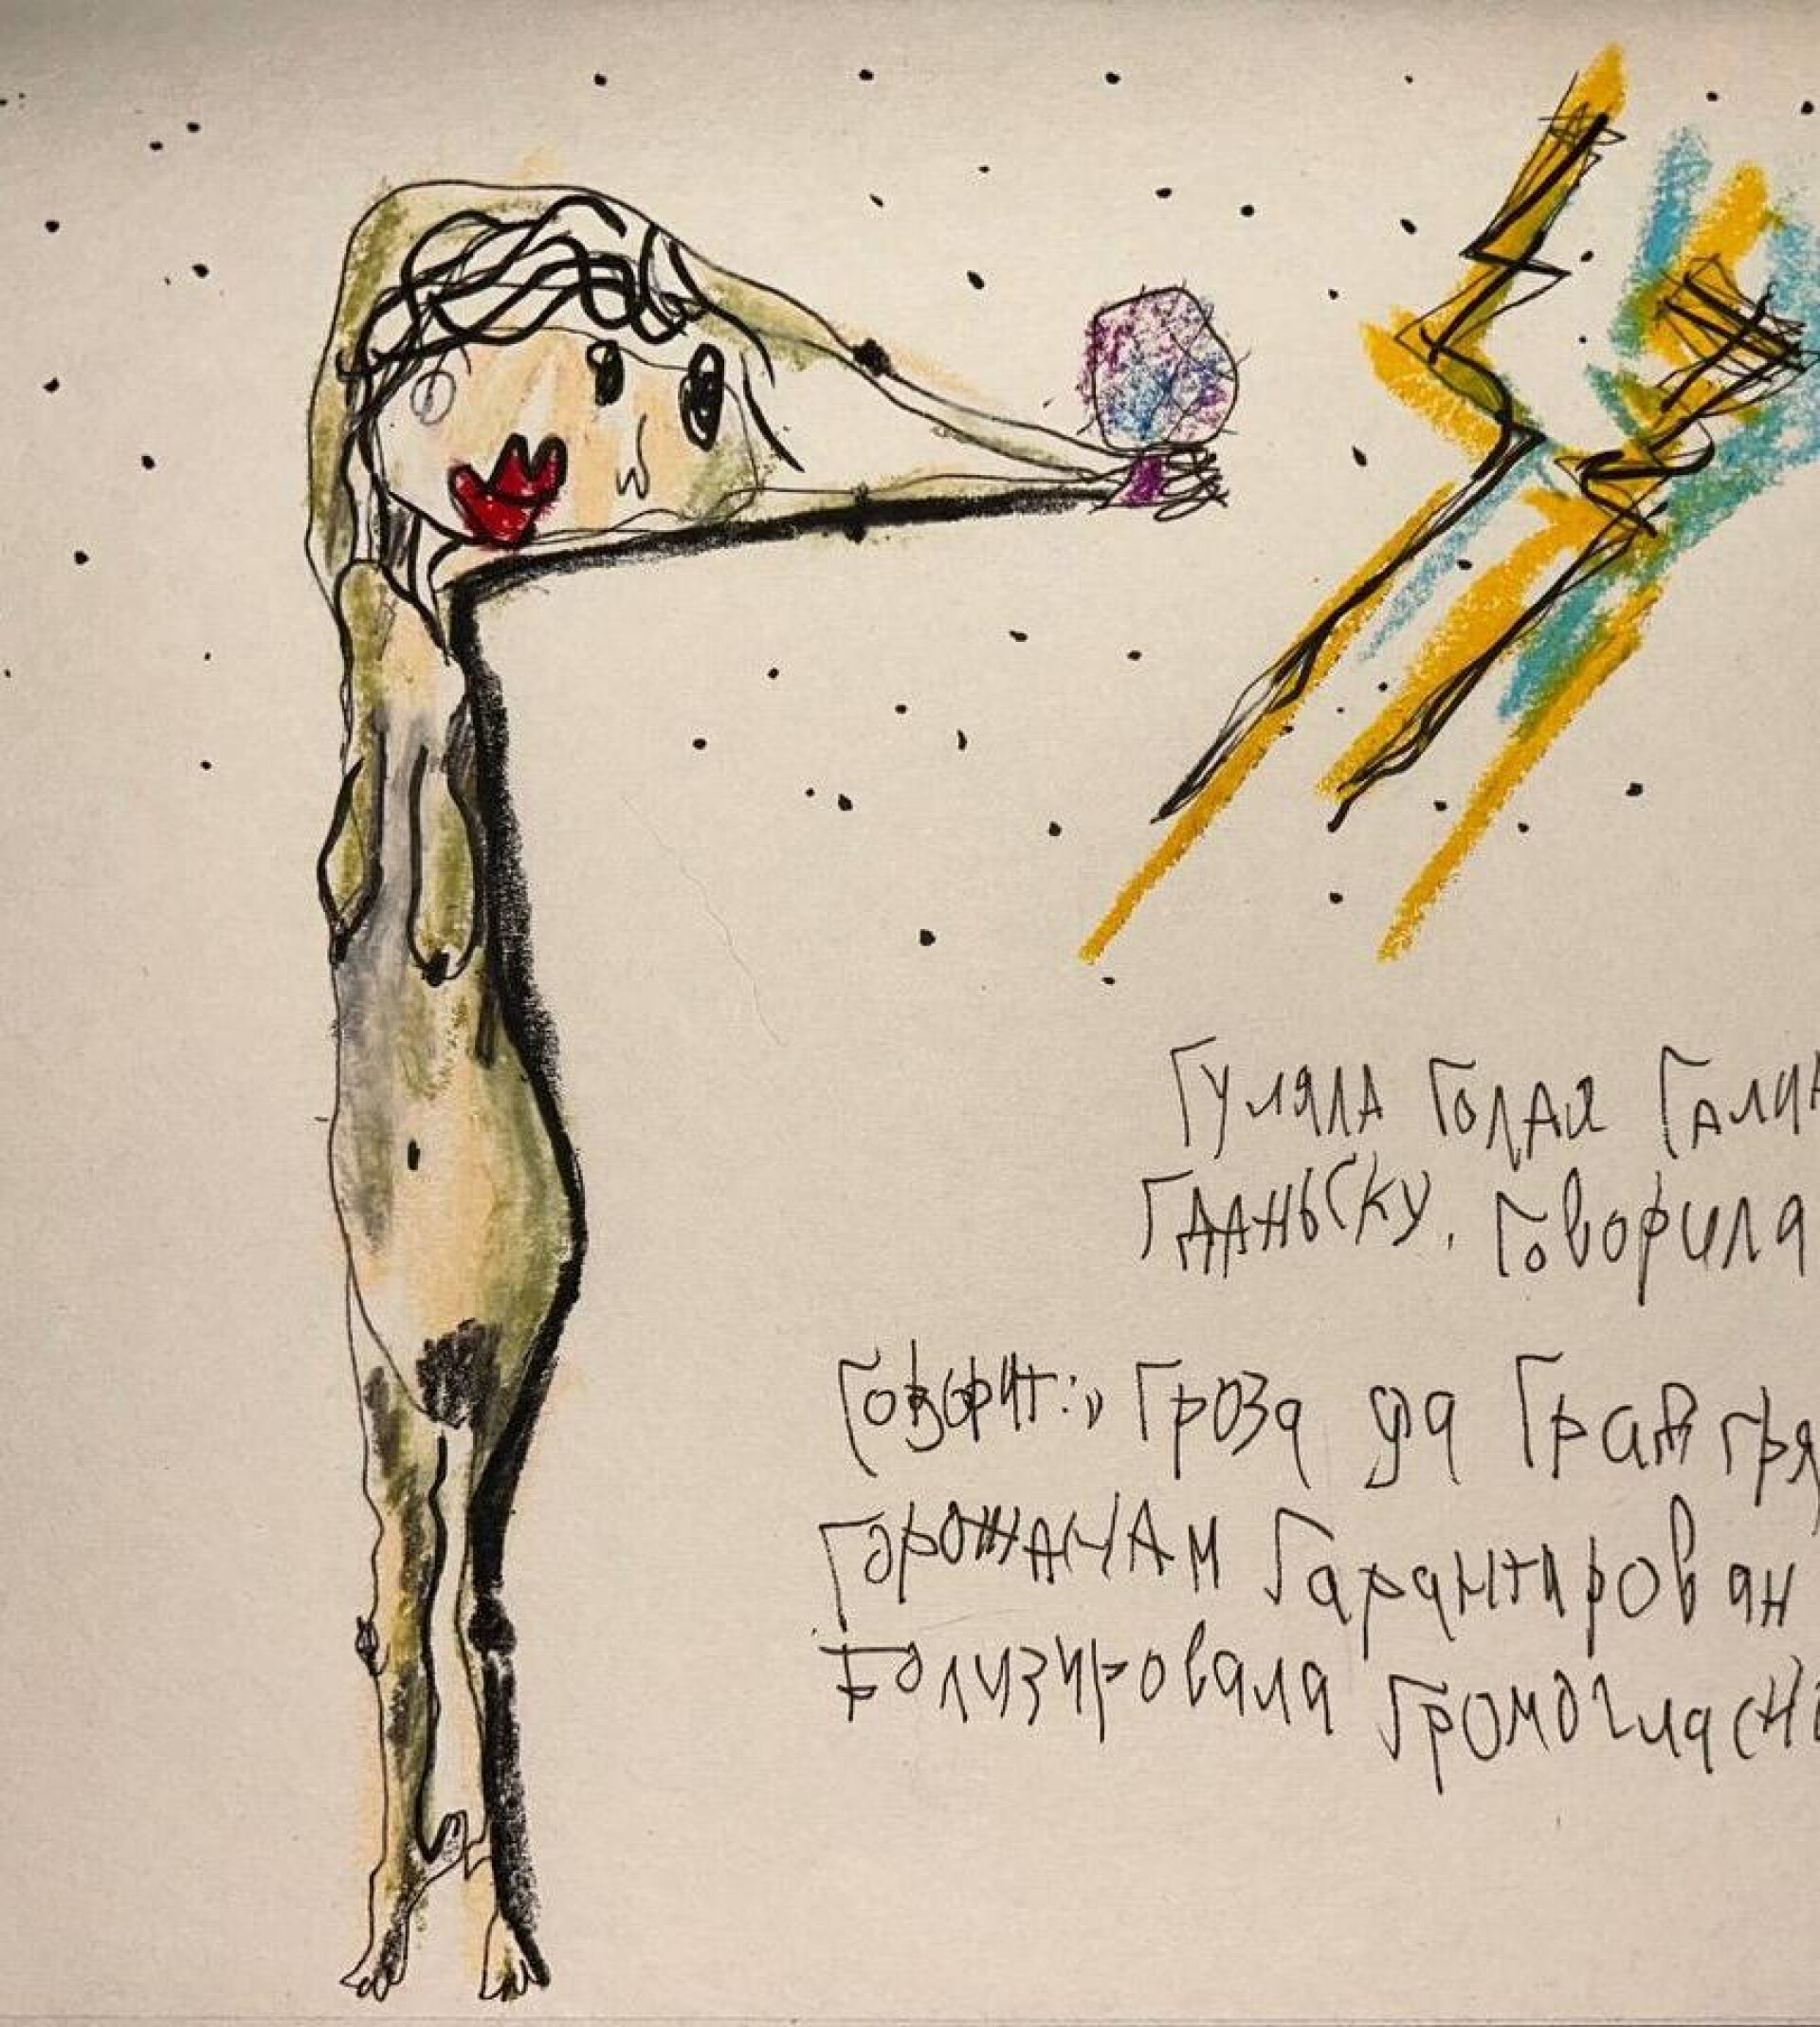 Гуляла Голая Гали
Гданьску. Говорила
Говорит:" Гроза да Град гря
Горожанам Гарантирован
Голизировала Громогласно